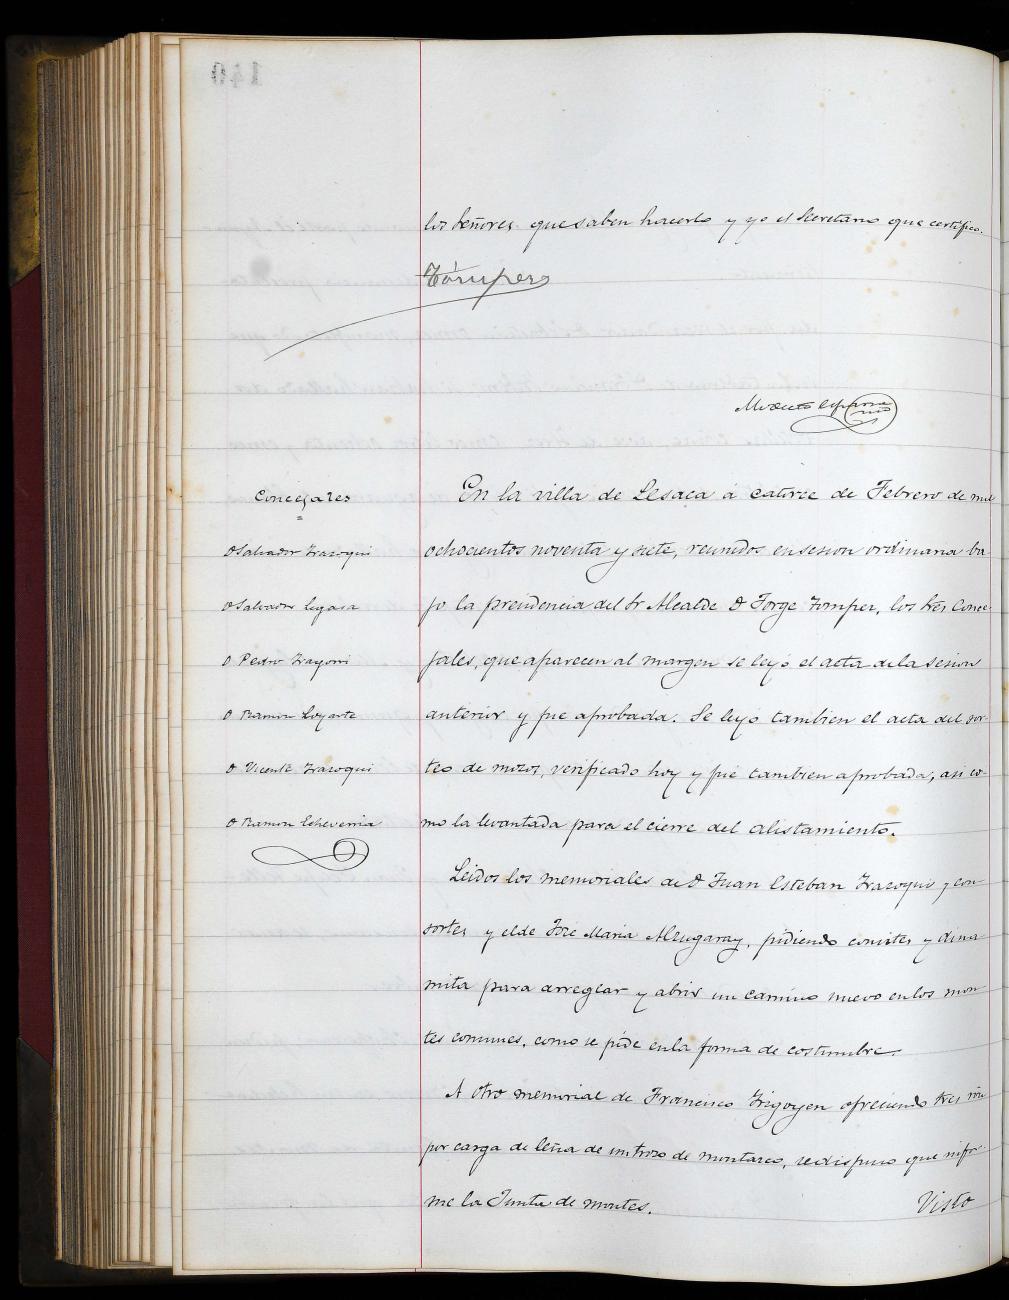 los Señores que saben hacerlo y yo el Secretario que certifico.
Modesto
Concejales
D Salvador Irazoqui
D Salvador Legasa
D Pedro
D Ramon Loyarte
D Vicente Irazoqui
D Ramon Echeverria
En la villa de Lesaca á catorce de Febrero de mil
ochocientos noventa y siete, reunidos en sesion ordinaria ba
jo la presidencia del Sr Alcalde D Jorge los tres Conce-
jales, que aparecen al margen se leyó el acta de la sesion
anterior y fue aprobada. Se leyó tambien el acta del sor-
teo de mozos, verificado hoy y fue tambien aprobada, asi co-
mo la levantada para el cierre del alistamiento.
Leidos los memoriales de D Juan Esteban Irazoqui y con-
sortes y el de José Maria Alzugaray, pidiendo convites y dina-
mita para arreglar y abrir un camino nuevo en los mon-
tes comunes, como se pide en la forma de costumbre.
A otro memorial de Francisco Irigoyen ofreciendo tres
por carga de leña de un trozo de montazco, se dispuso que infor-
me la Junta de montes.
Visto